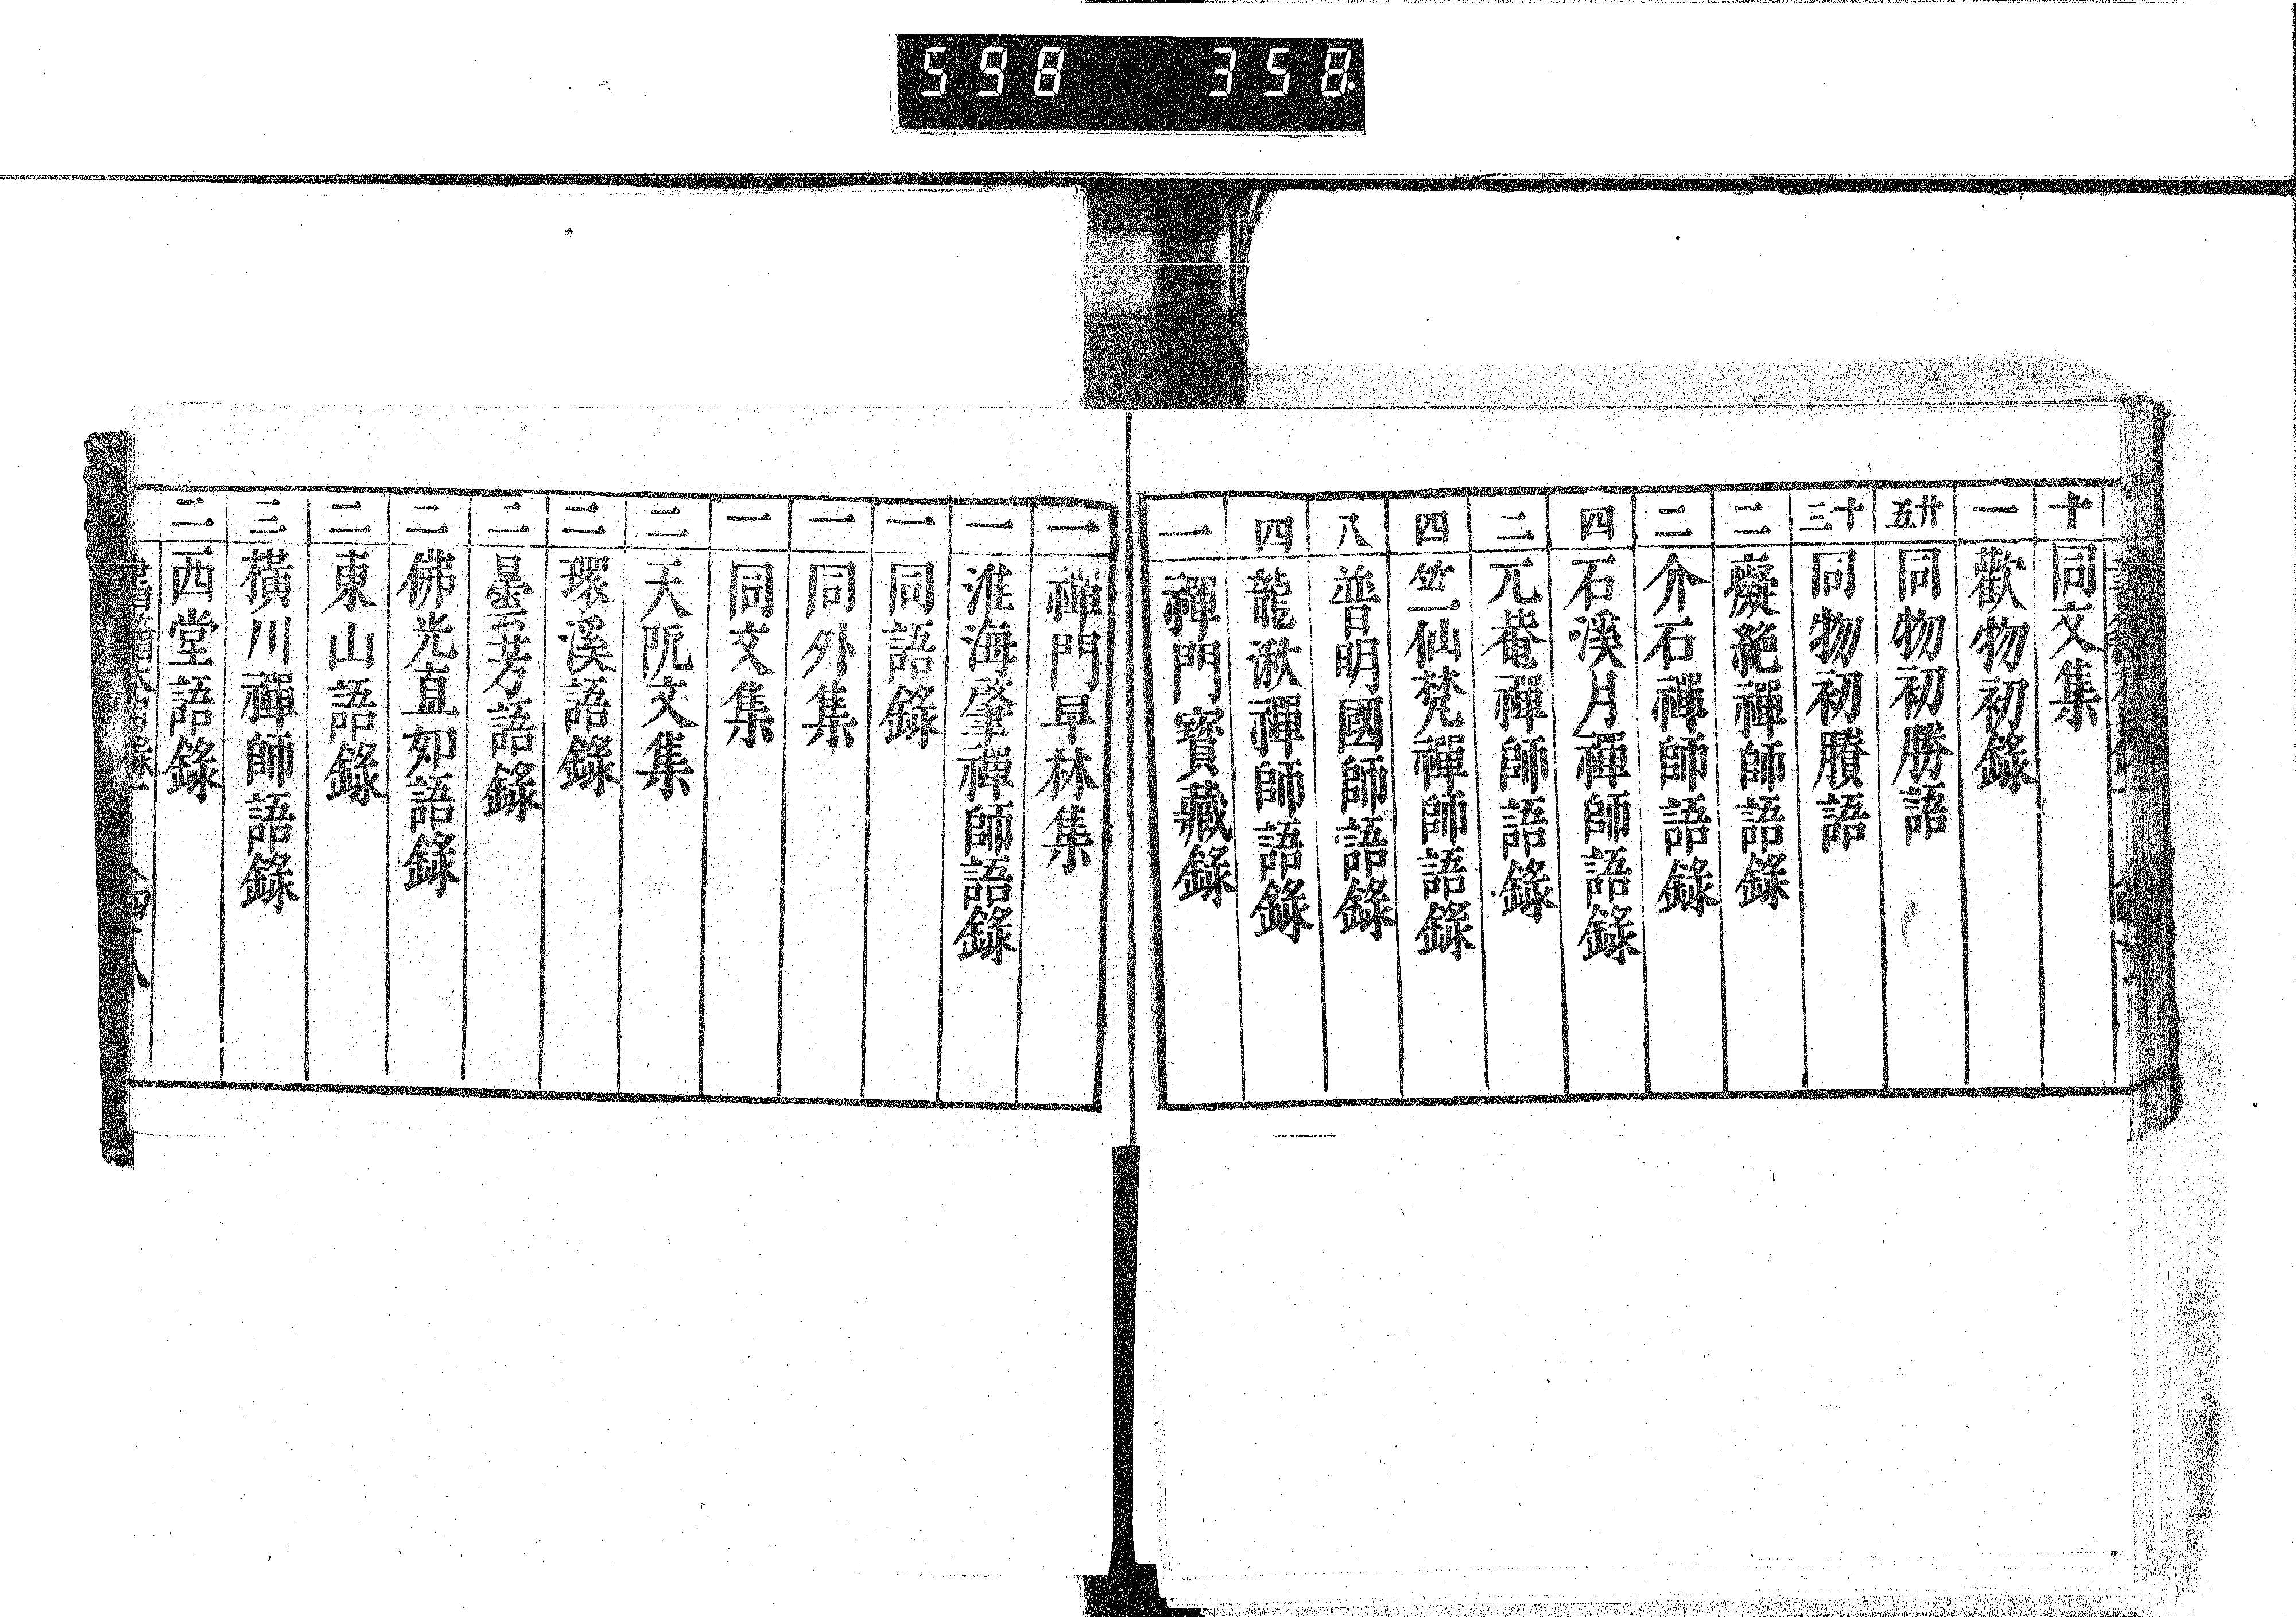 598 358
十 同文集
一 歡物初錄
廿五 同物初勝語
十三 同物初賸語
二 癡絕禪師語錄
二 介石禪師語錄
四 石溪月禪師語錄
二 兀菴禪師語錄
四 竺仙梵禪師語錄
八 普明國師語錄
四 龍湫禪師語錄
一 禪門寶藏錄
一 禪門早林集
一 淮海肇禪師語錄
一 同語錄
一 同外集
一 同文集
二 天阬文集
二 環溪語錄
二 曇芳語錄
二 佛光直如語錄
二 東山語錄
三 橫川禪師語錄
二 西堂語錄